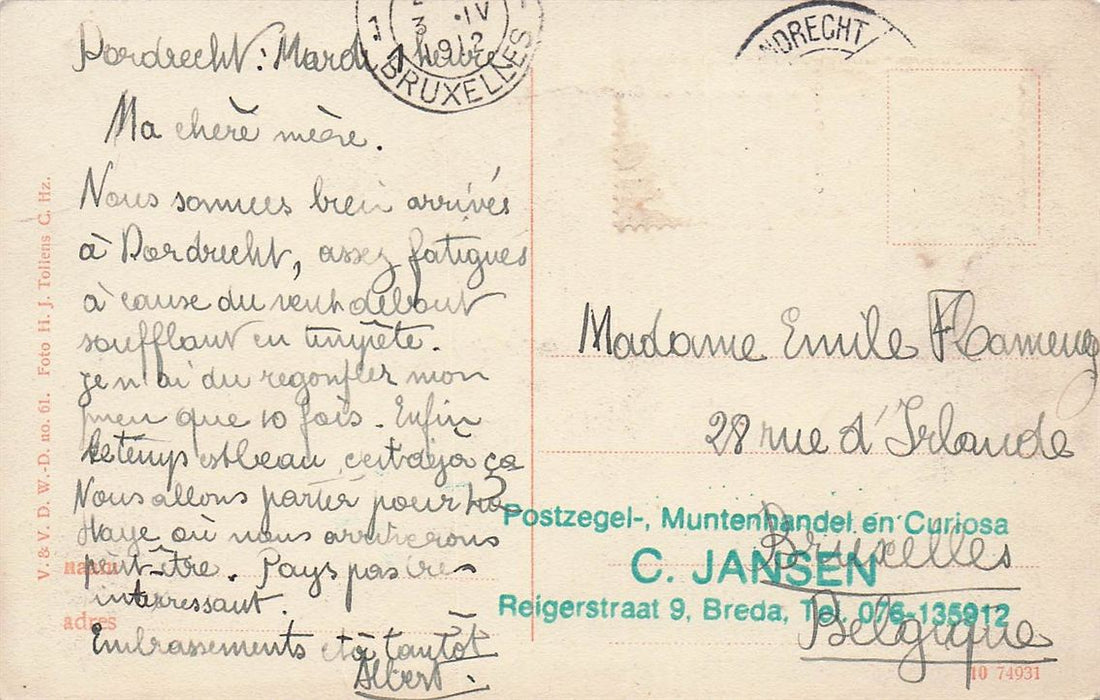 Dordrecht: Mardi 1 heure
Ma chère mère.
Nous sommes bien arrivés
à Dordrecht, assez fatigués
à cause du vent debout
soufflant en tempête.
Je n'ai du regonfler mon
pneu que 10 fois. Enfin
le temps est beau, c'est déjà ça
Nous allons partir pour La
Haye où nous arriverons
peut-être. Pays pas très
interressant.
Embrassements et à tantôt
Albert.
3 .IV
1912
BRUXELLES
NDRECHT
Madame Emile Flameng
28 rue d'Irlande
Bruxelles
Belgique
Postzegel-, Muntenhandel en Curiosa
C. JANSEN
Reigerstraat 9, Breda, Tel. 076-135912
naam
adres
V. & V. D. W.-D. no. 61. Foto H. J. Tollens C. Hz.
10 74931